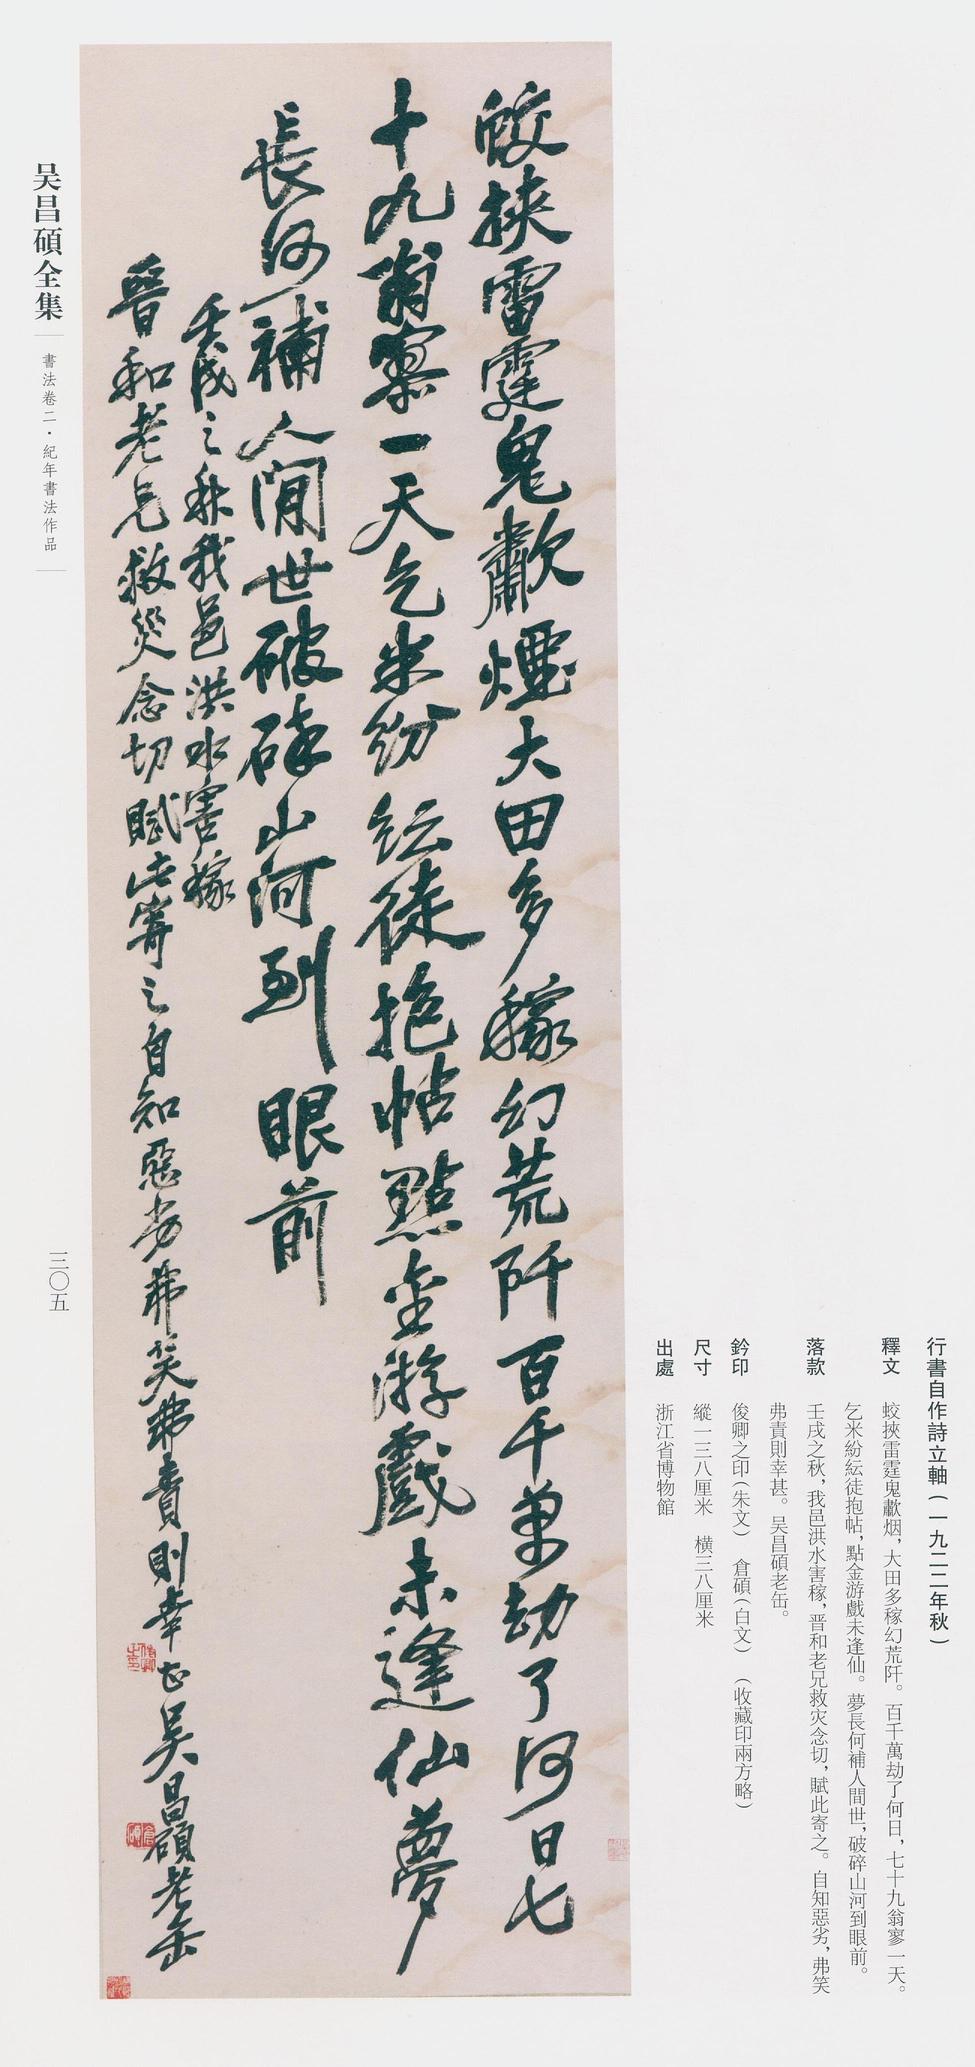 蛟挾雷霆鬼歗煙大田多稼幻荒阡百千萬劫了何日七
十九翁寥一天乞米紛紜徒抱帖點金游戲未逢仙夢
長何補人間世破碎山河到眼前
壬戌之秋我邑洪水害稼
晉和老兄救災念切賦此寄之自知惡劣弗笑弗責則幸甚吳昌碩老缶
行書自作詩立軸(一九二二年秋)
釋文 蛟挾雷霆鬼歗烟,大田多稼幻荒阡。百千萬劫了何日,七十九翁寥一天。
乞米紛紜徒抱帖,點金游戲未逢仙。夢長何補人間世,破碎山河到眼前。
落款 壬戌之秋,我邑洪水害稼,晋和老兄救灾念切,賦此寄之。自知惡劣,弗笑
弗責則幸甚。吴昌碩老缶。
鈐印 俊卿之印(朱文) 倉碩(白文) (收藏印兩方略)
尺寸 縱一三八厘米 橫三八厘米
出處 浙江省博物館
吴昌碩全集
書法卷二·紀年書法作品
三〇五